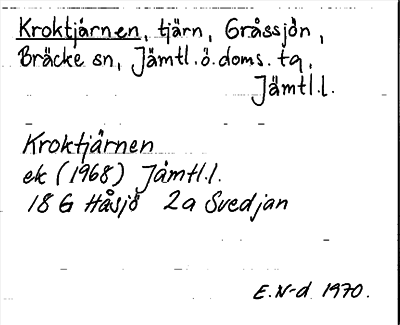 Kroktjärnen, tjärn, Gråssjön,
Bräcke sn, Jämtl.ö.doms. tg,
Jämtl.l.
Kroktjärnen
ek (1968) Jämtl.l.
18 G Håsjö 2a Svedjan
E.N-d 1970.